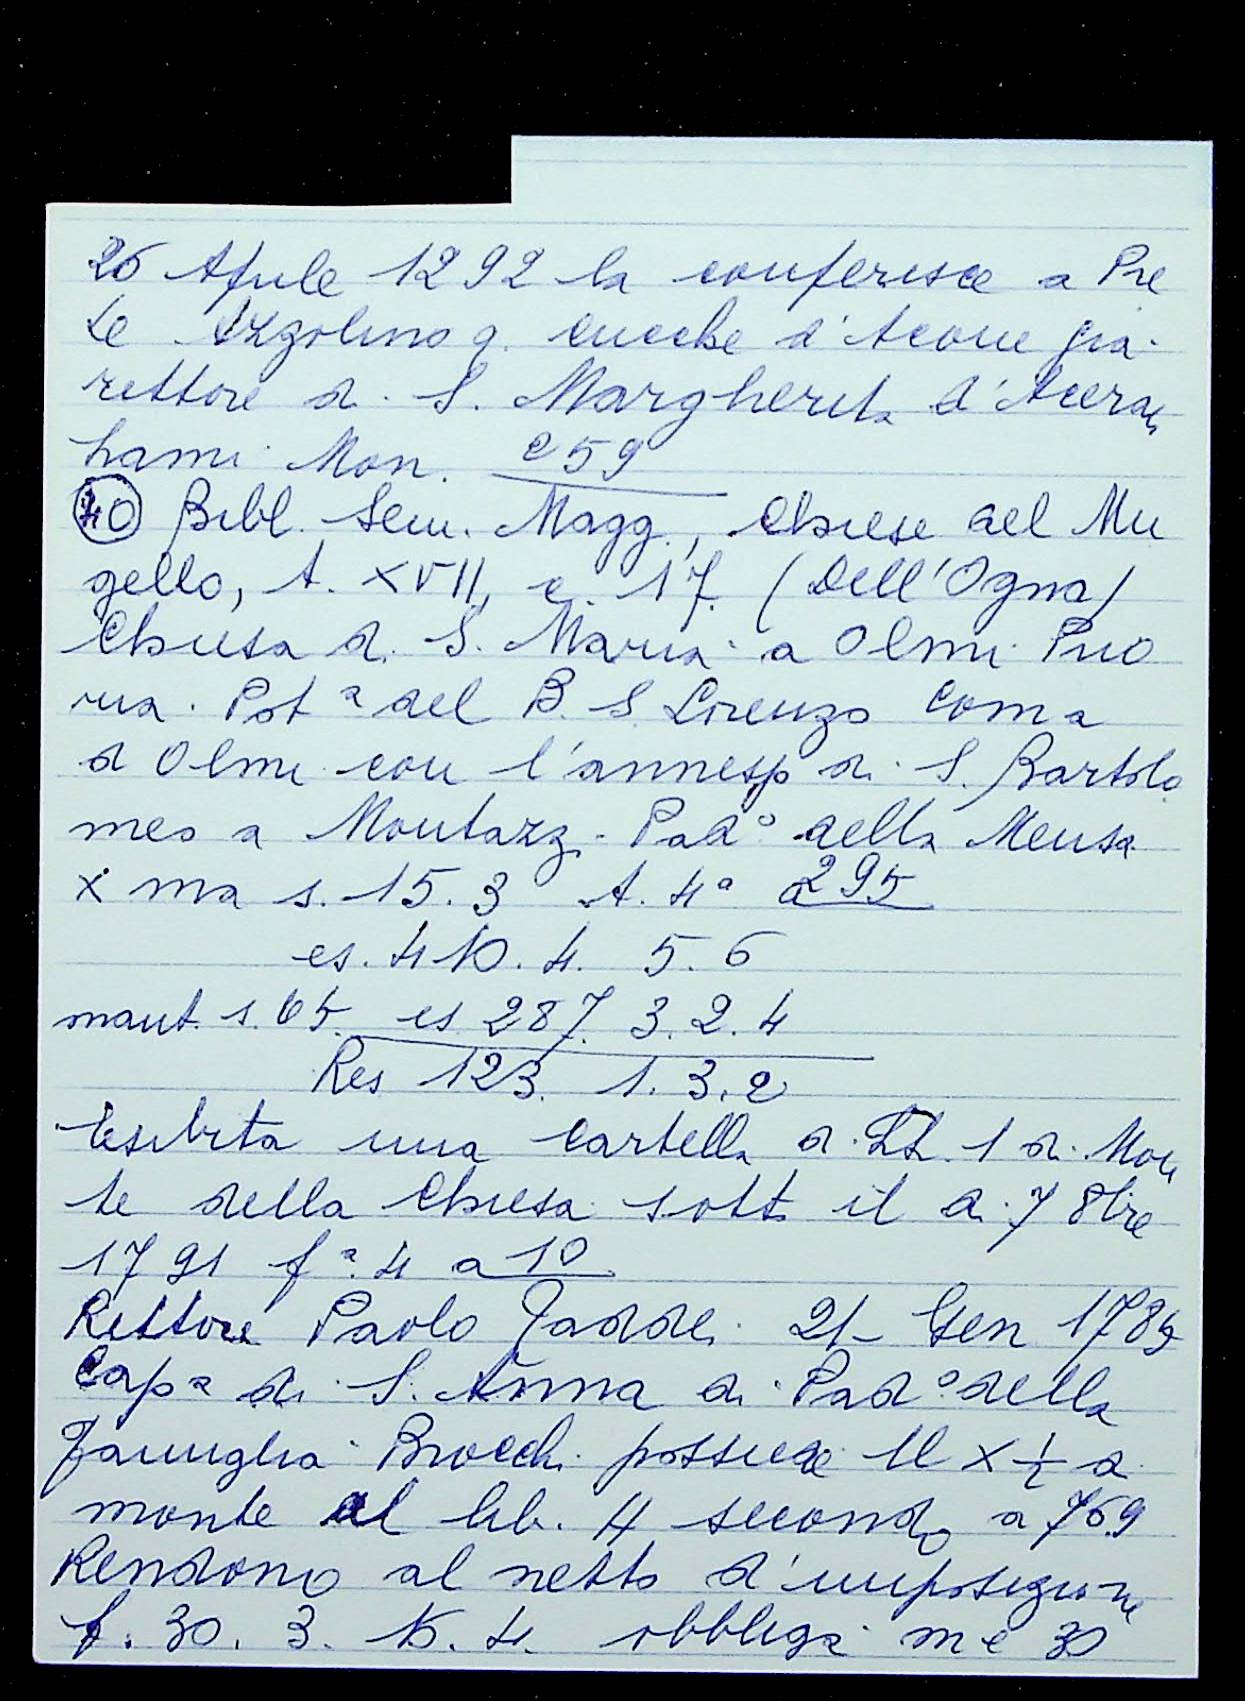 26 Aprile 1292 la conferisce a Pre
te Azzolino q. Cucche d'Acone già
rettore di S. Margherita d'Acera
hami Mon. c 59
40 Bibl. Sem. Magg., Chiese del Mu
gello, A. XVII, c. 17. (Dell'Ogna)
Chiesa di S. Maria a Olmi Prio
ria. Pot.a del B. S. Lorenzo Com.a
d Olmi con l'annesso di S. Bartolo
meo a Montazzi Pad.o della Mensa
X ma s. 15. 3 A. 4a a 295
es. 410. 4. 5. 6
mant. s. 65. es 287. 3. 2. 4
Res 123. 1. 3. 2
Esibita una cartella di LL. 1 di Mon
te della Chiesa sott. il di 7 8bre
1791 f.a 4 a 10
Rettore Paolo Taddei 21 Gen 1785
Capa di S. Anna di Pad.o della
famiglia Brocchi possiede ll X 1/2 a
monte al lib. 4 secondo a 769
Rendono al netto d'imposizione
f. 30. 3. 15. 4. obbliga me 30